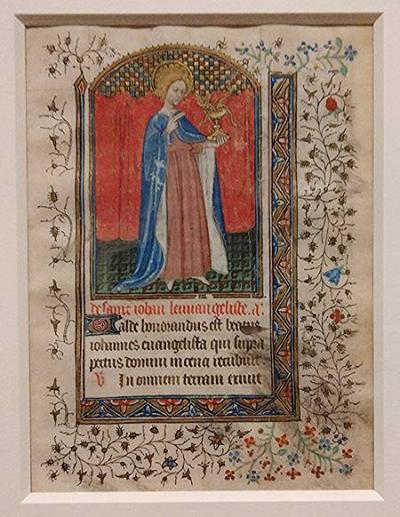 de saint iohan leuuangeliste. a.
Valde honorandus est beatus
iohannes euangelista qui supra
pectus domini in cena recubuit
V In omnem terram exiuit